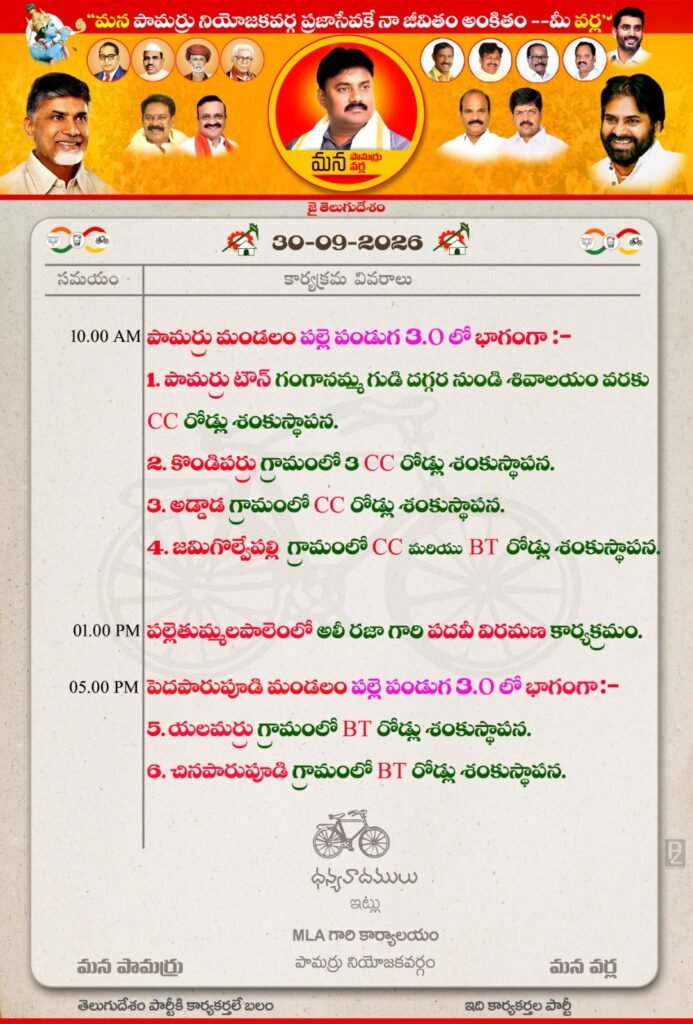 "మన పామర్రు నియోజకవర్గ ప్రజాసేవకే నా జీవితం అంకితం --మీ వర్ల"
మన పామర్రు వర్ల
జై తెలుగుదేశం
30-09-2026
సమయం కార్యక్రమ వివరాలు
10.00 AM పామర్రు మండలం పల్లె పండుగ 3.0 లో భాగంగా :-
1. పామర్రు టౌన్ గంగానమ్మ గుడి దగ్గర నుండి శివాలయం వరకు
CC రోడ్లు శంకుస్థాపన.
2. కొండిపర్రు గ్రామంలో 3 CC రోడ్లు శంకుస్థాపన.
3. అడ్డాడ గ్రామంలో CC రోడ్లు శంకుస్థాపన.
4. జమిగొల్వేపల్లి గ్రామంలో CC మరియు BT రోడ్లు శంకుస్థాపన.
01.00 PM పల్లెతుమ్మలపాలెంలో అలీ రజా గారి పదవీ విరమణ కార్యక్రమం.
05.00 PM పెదపారుపూడి మండలం పల్లె పండుగ 3.0 లో భాగంగా:-
5. యలమర్రు గ్రామంలో BT రోడ్లు శంకుస్థాపన.
6. చినపారుపూడి గ్రామంలో BT రోడ్లు శంకుస్థాపన.
ధన్యవాదములు
ఇట్లు
MLA గారి కార్యాలయం
మన పామర్రు పామర్రు నియోజకవర్గం మన వర్ల
తెలుగుదేశం పార్టీకి కార్యకర్తలే బలం ఇది కార్యకర్తల పార్టీ